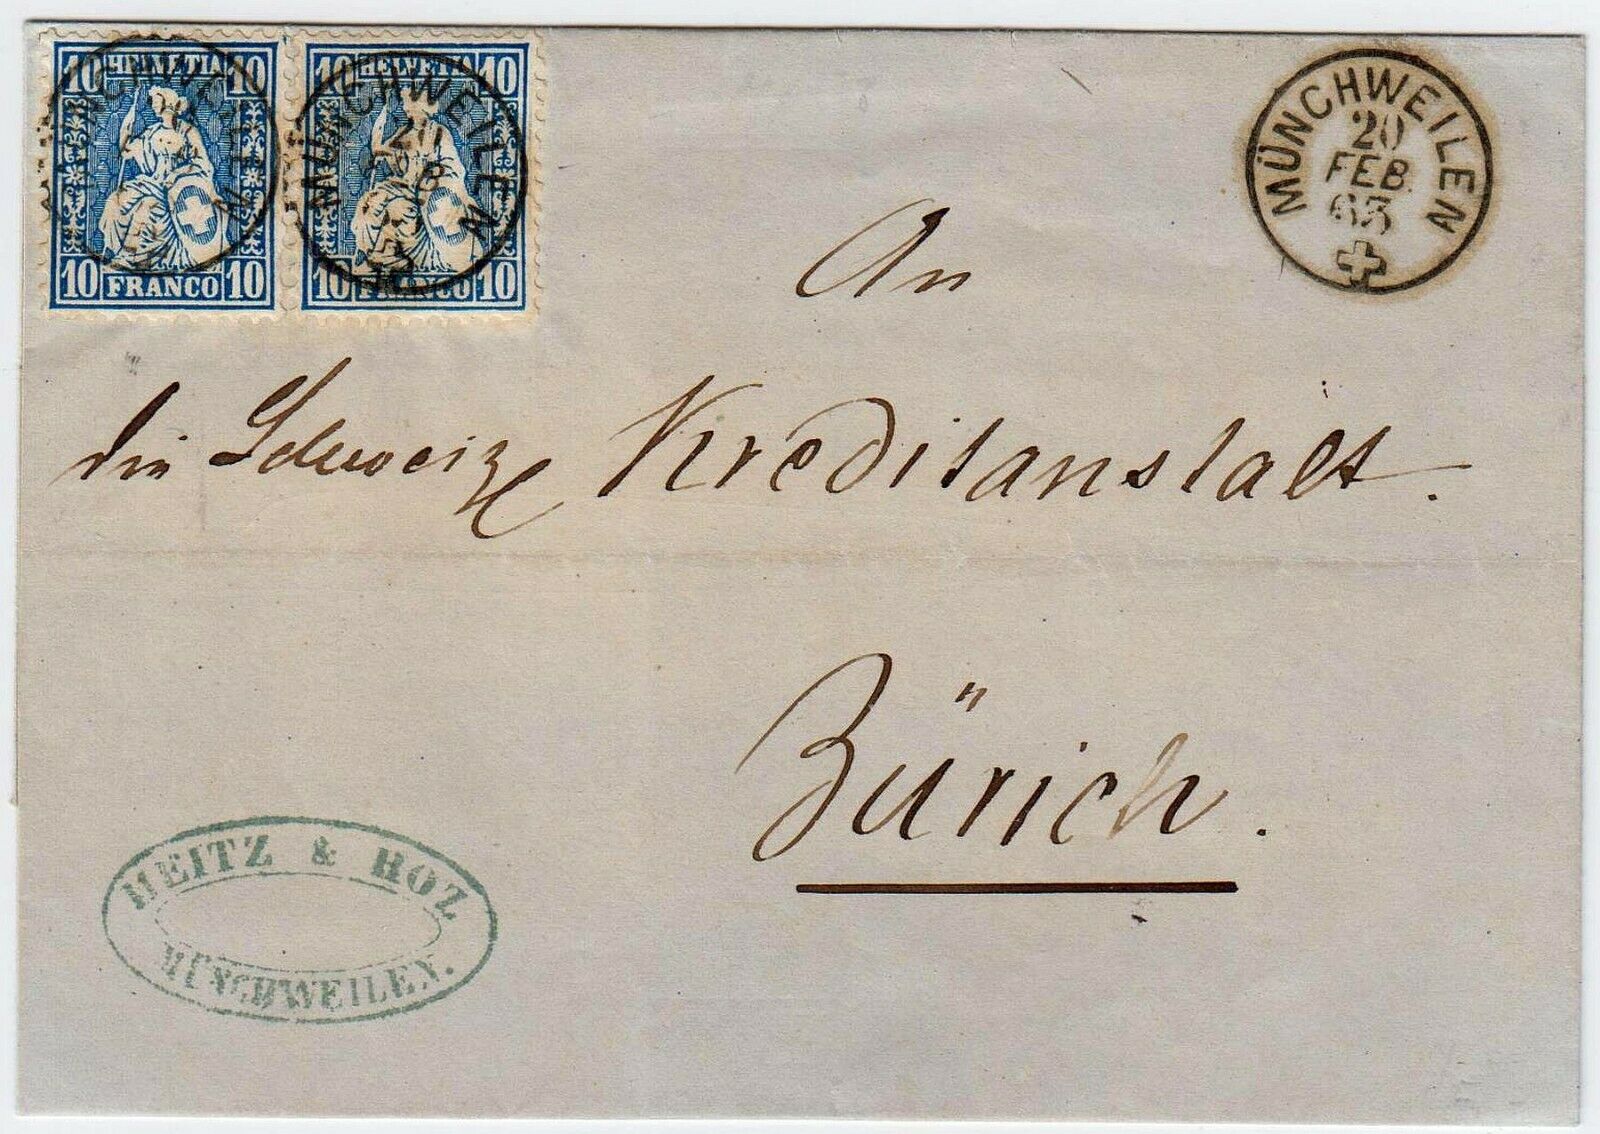 10 HELVETIA 10
10 FRANCO 10
10 HELVETIA 10
10 FRANCO 10
MÜNCHWEILEN
MÜNCHWEILEN
20
FEB
63
MÜNCHWEILEN
20
FEB.
63
An
die Schweiz Kreditanstalt.
Zürich.
& HOZ
MÜNCHWEILEN.